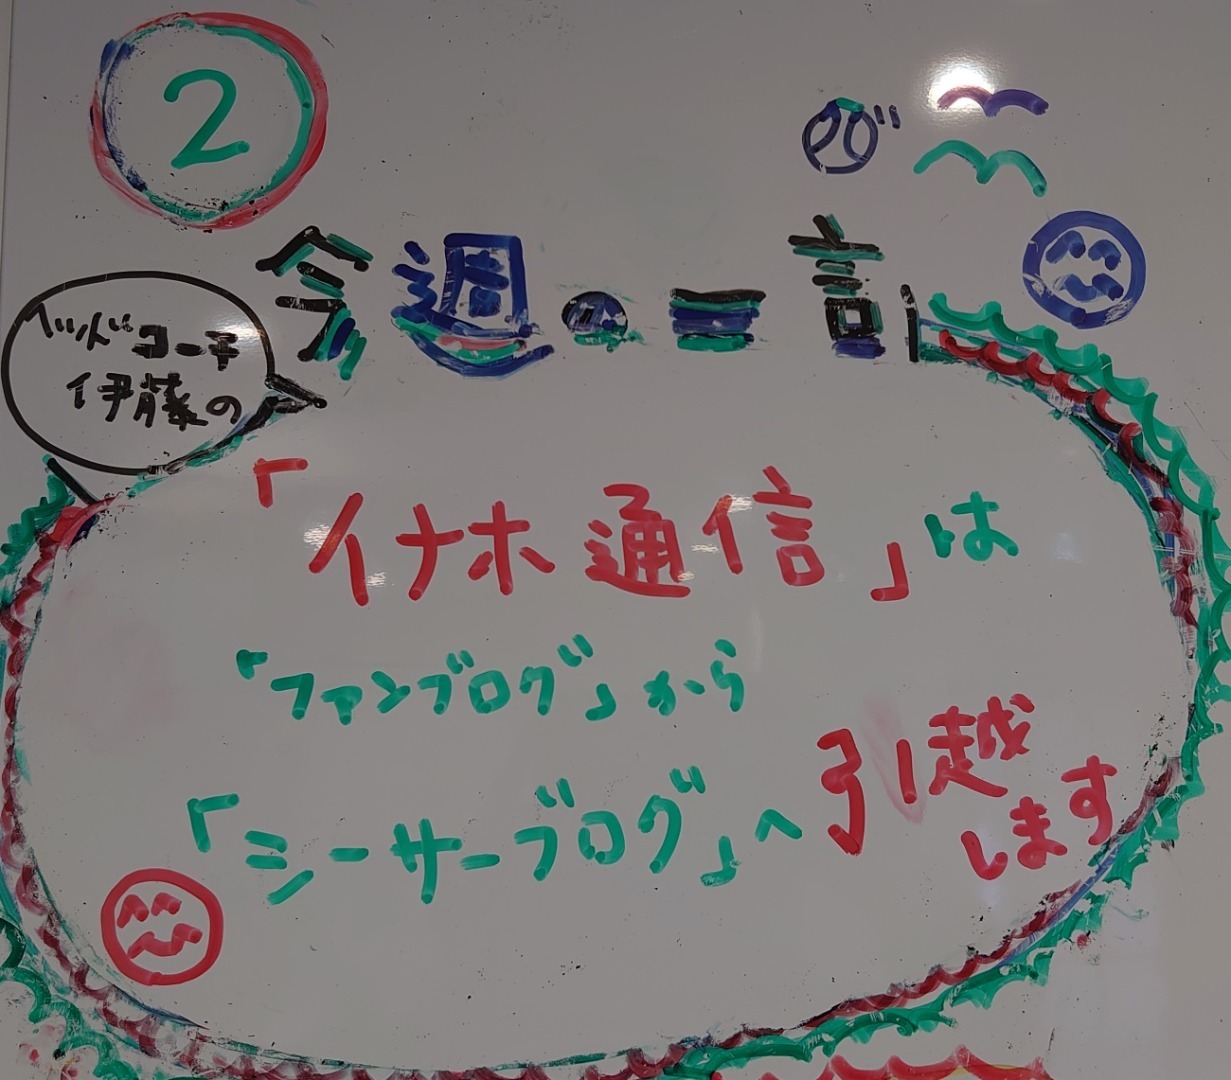 2
今週の一言
ヘッドコーチ
伊藤の
「イナホ通信」は
「ファンブログ」から
「シーサーブログ」へ引越
します